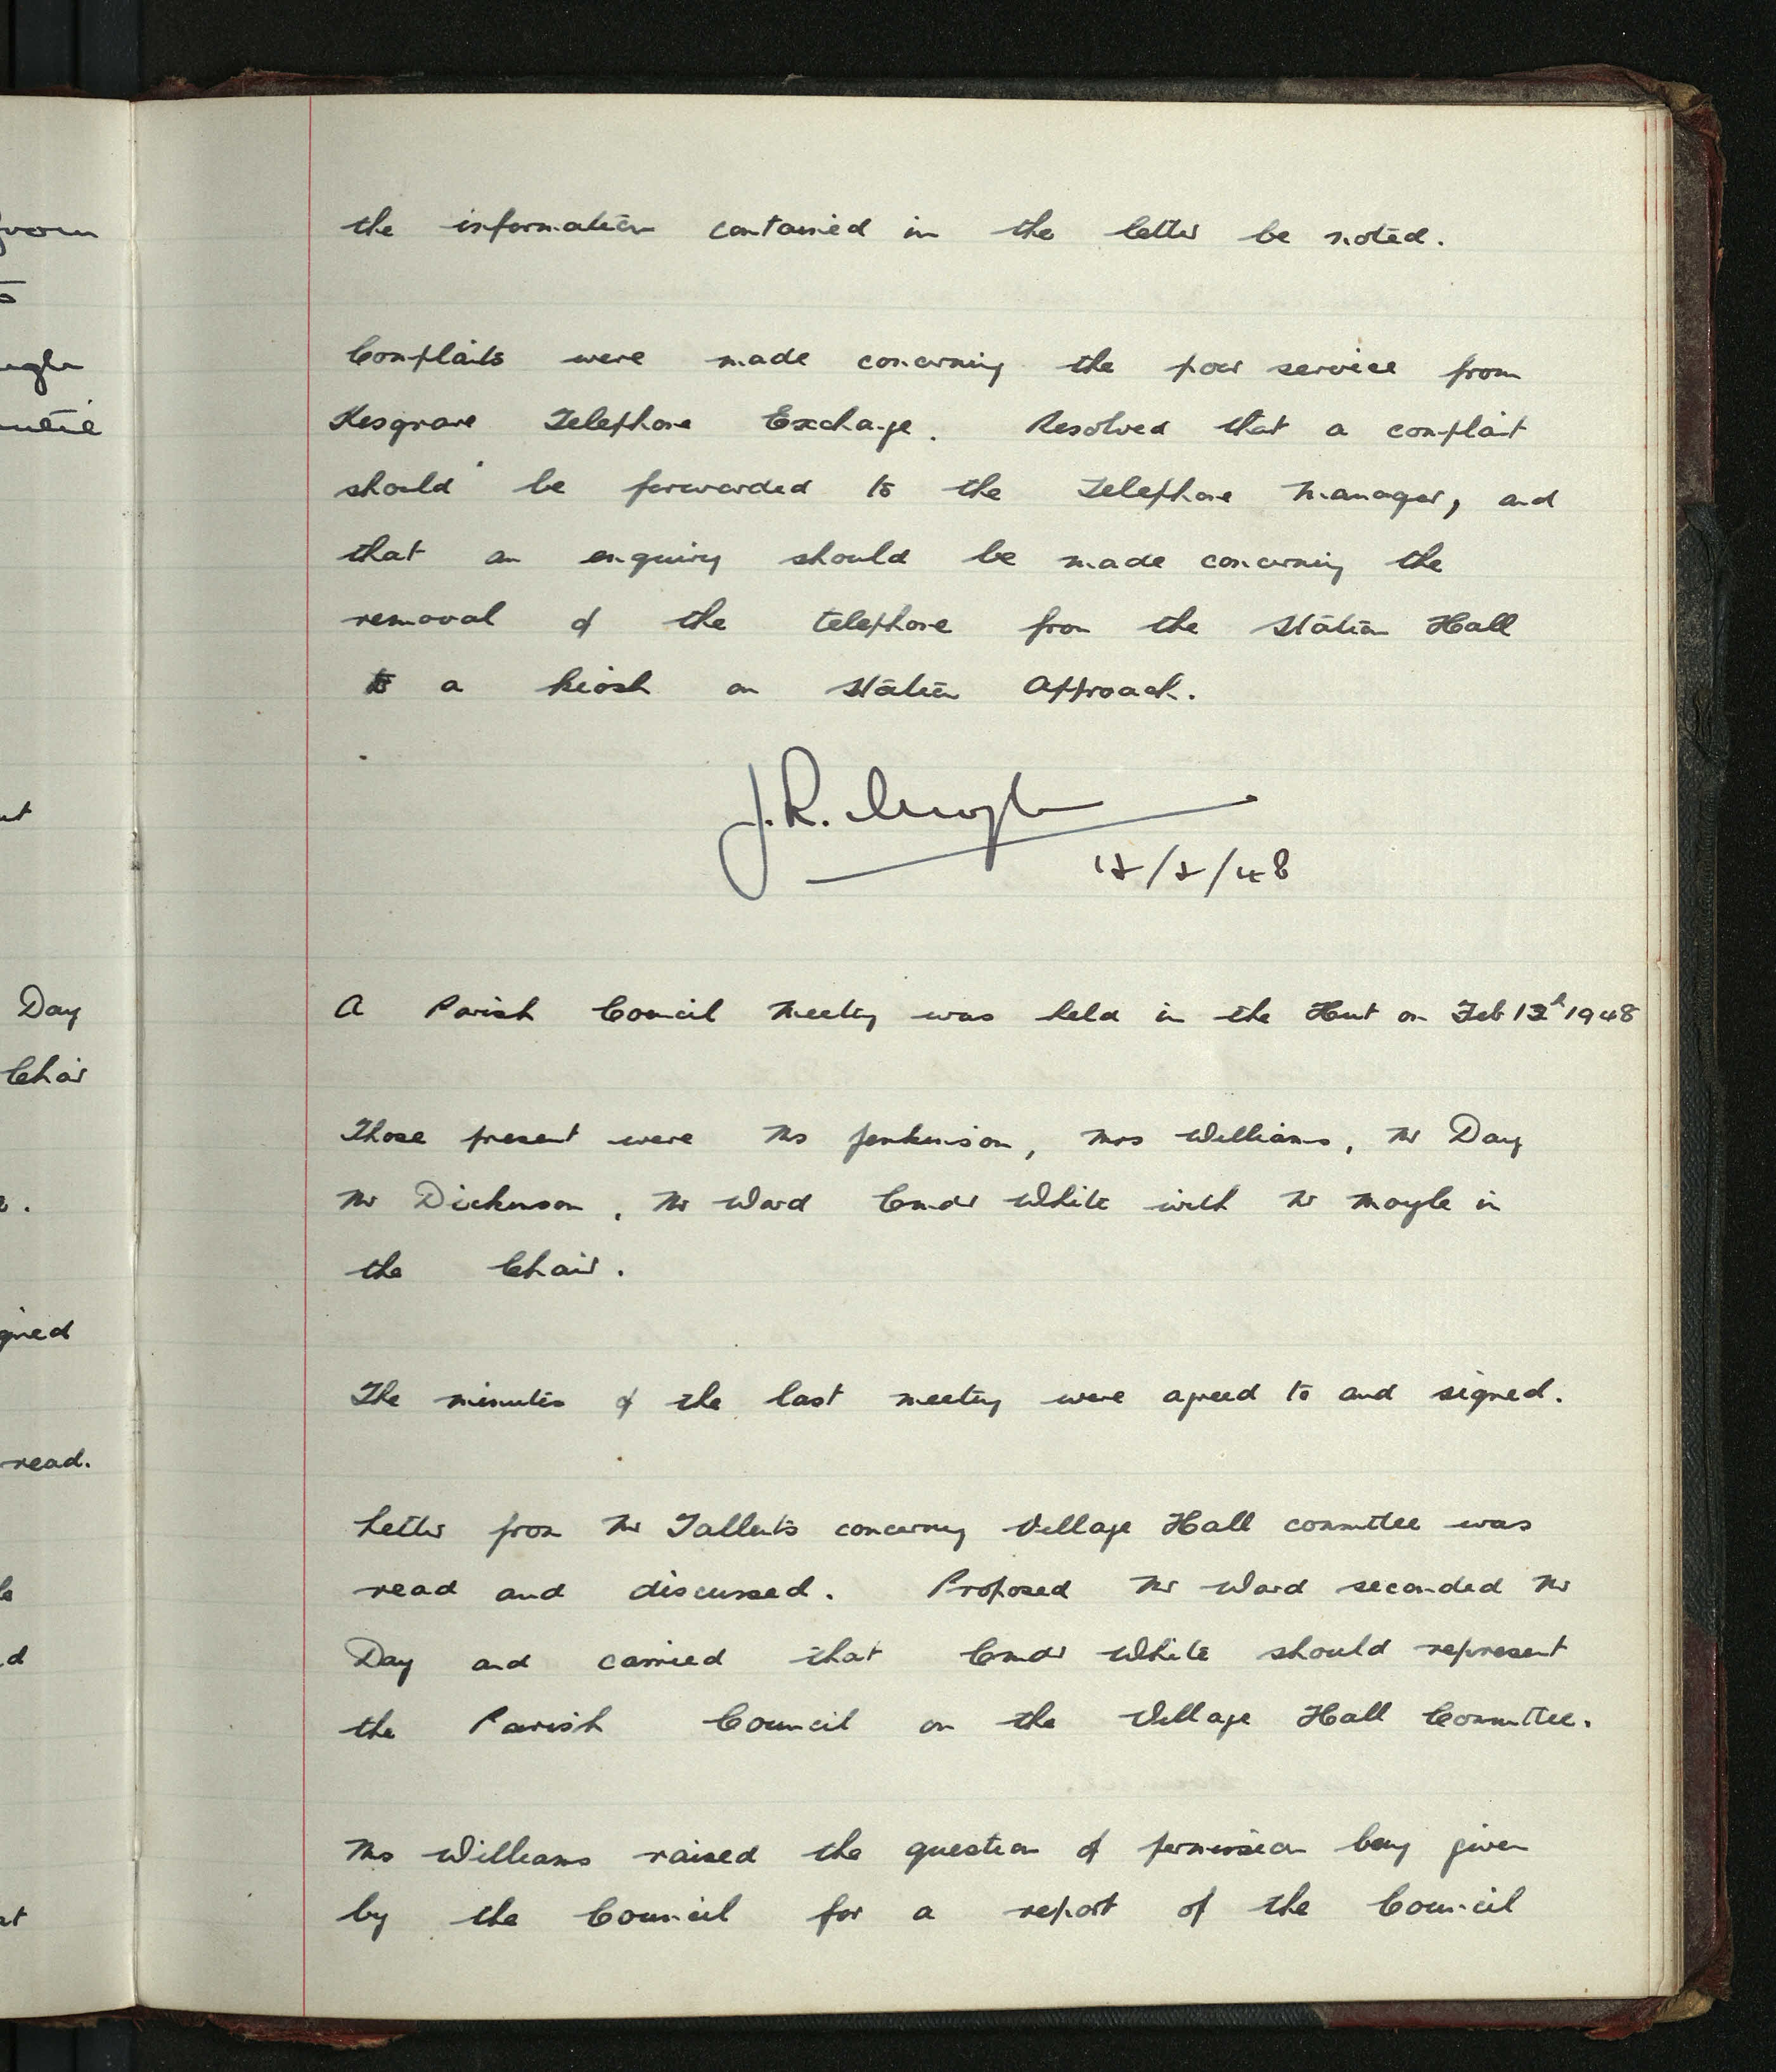 the information contained in the letter be noted.
Complaints were made concerning the poor service from
Kesgrave Telephone Exchange. Resolved that a complaint
should be forwarded to the Telephone Manager, and
that an enquiry should be made concerning the
removal of the telephone from the Station Hall
to a kiosk on Station Approach.
J.R. Moyle
A Parish Council Meeting was held in the Hut on Feb 12th 1948
Those present were Ms Jenkinson, Mrs Williams, Mr Day
Mr Dickenson, Mr Ward Cmdr White with Mr Moyle in
the Chair.
The minutes of the last meeting were agreed to and signed.
Letter from Mr Tallents concerning Village Hall committee was
read and discussed. Proposed Mr Ward seconded Mr
Day and carried that Cmdr White should represent
the Parish Council on the Village Hall Committee.
Ms Williams raised the question of permission being given
by the Council for a report of the Council
Day
Chair
read.